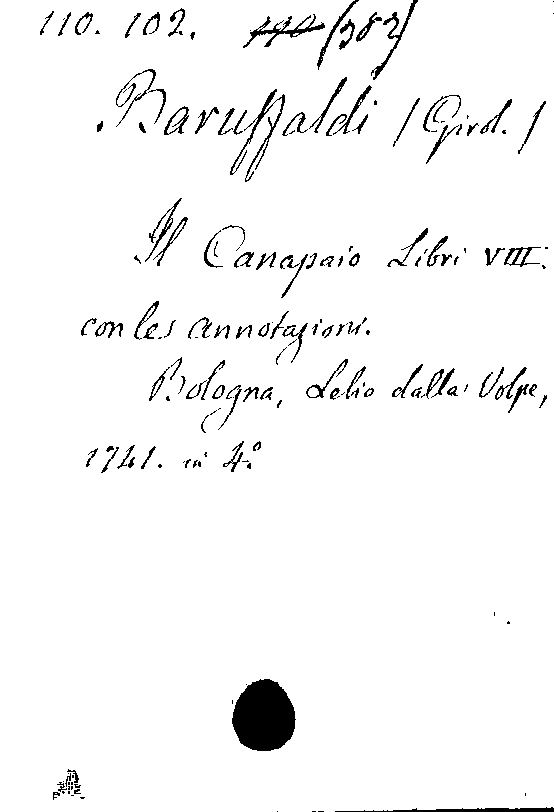 110. 102. 190 (382)
Baruffaldi / Girol. /
Il Canapaio Libri VIII.
con les annotazioni.
Bologna, Lelio dalla Volpe,
1741. in 4.º